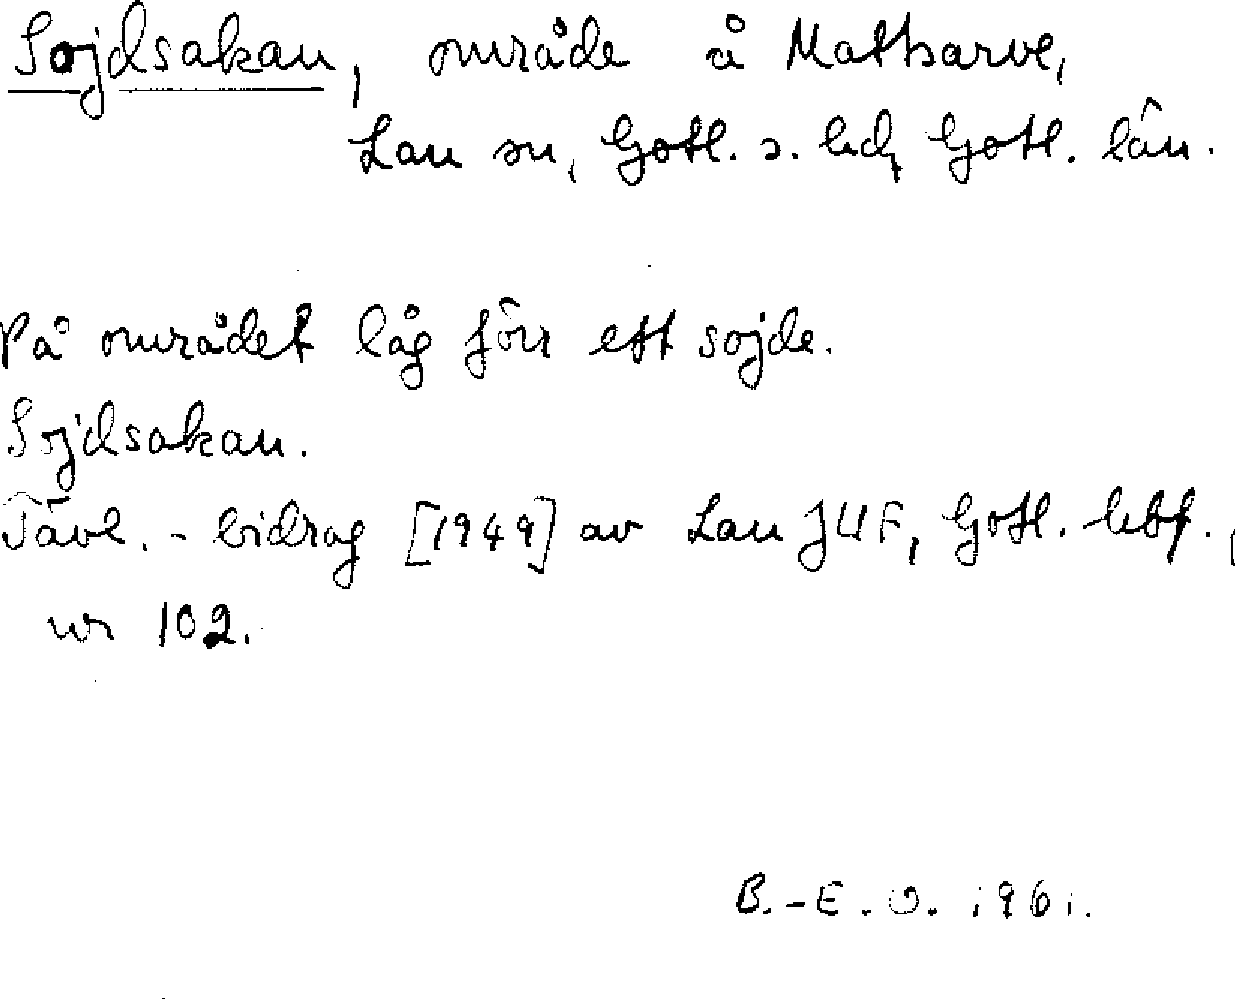 Sojdsakan, område å Mattsarve,
Lau sn, Gotl. s. hd, Gotl. län.
På området låg förr ett sojde.
Sojdsakan.
Tävl.-bidrag [1949] av Lau JUF, Gotl. hbf.,
nr 102.
B.-E. O. 1961.